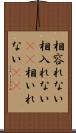 相容れない
相入れない
相いれ
ない